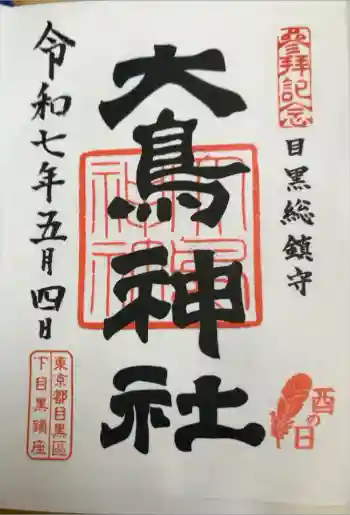 參拜記念
目黒総鎮守
大鳥神社
大鳥神社
酉の日
令和七年五月四日
東京都目黒區
下目黒鎮座